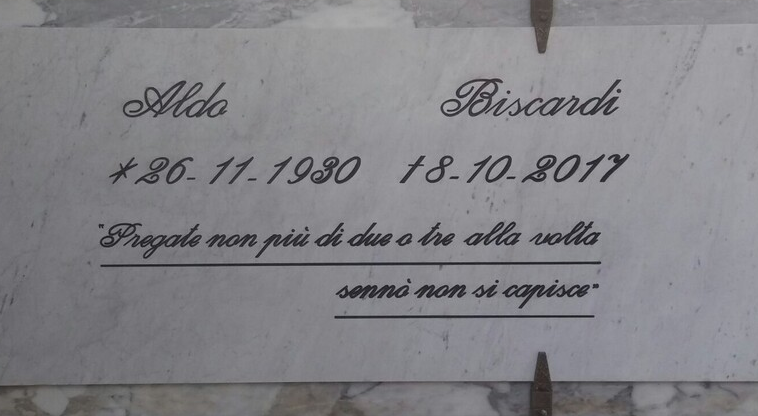 Aldo Biscardi
*26-11-1930 †8-10-2017
"Pregate non più di due o tre alla volta
sennò non si capisce"